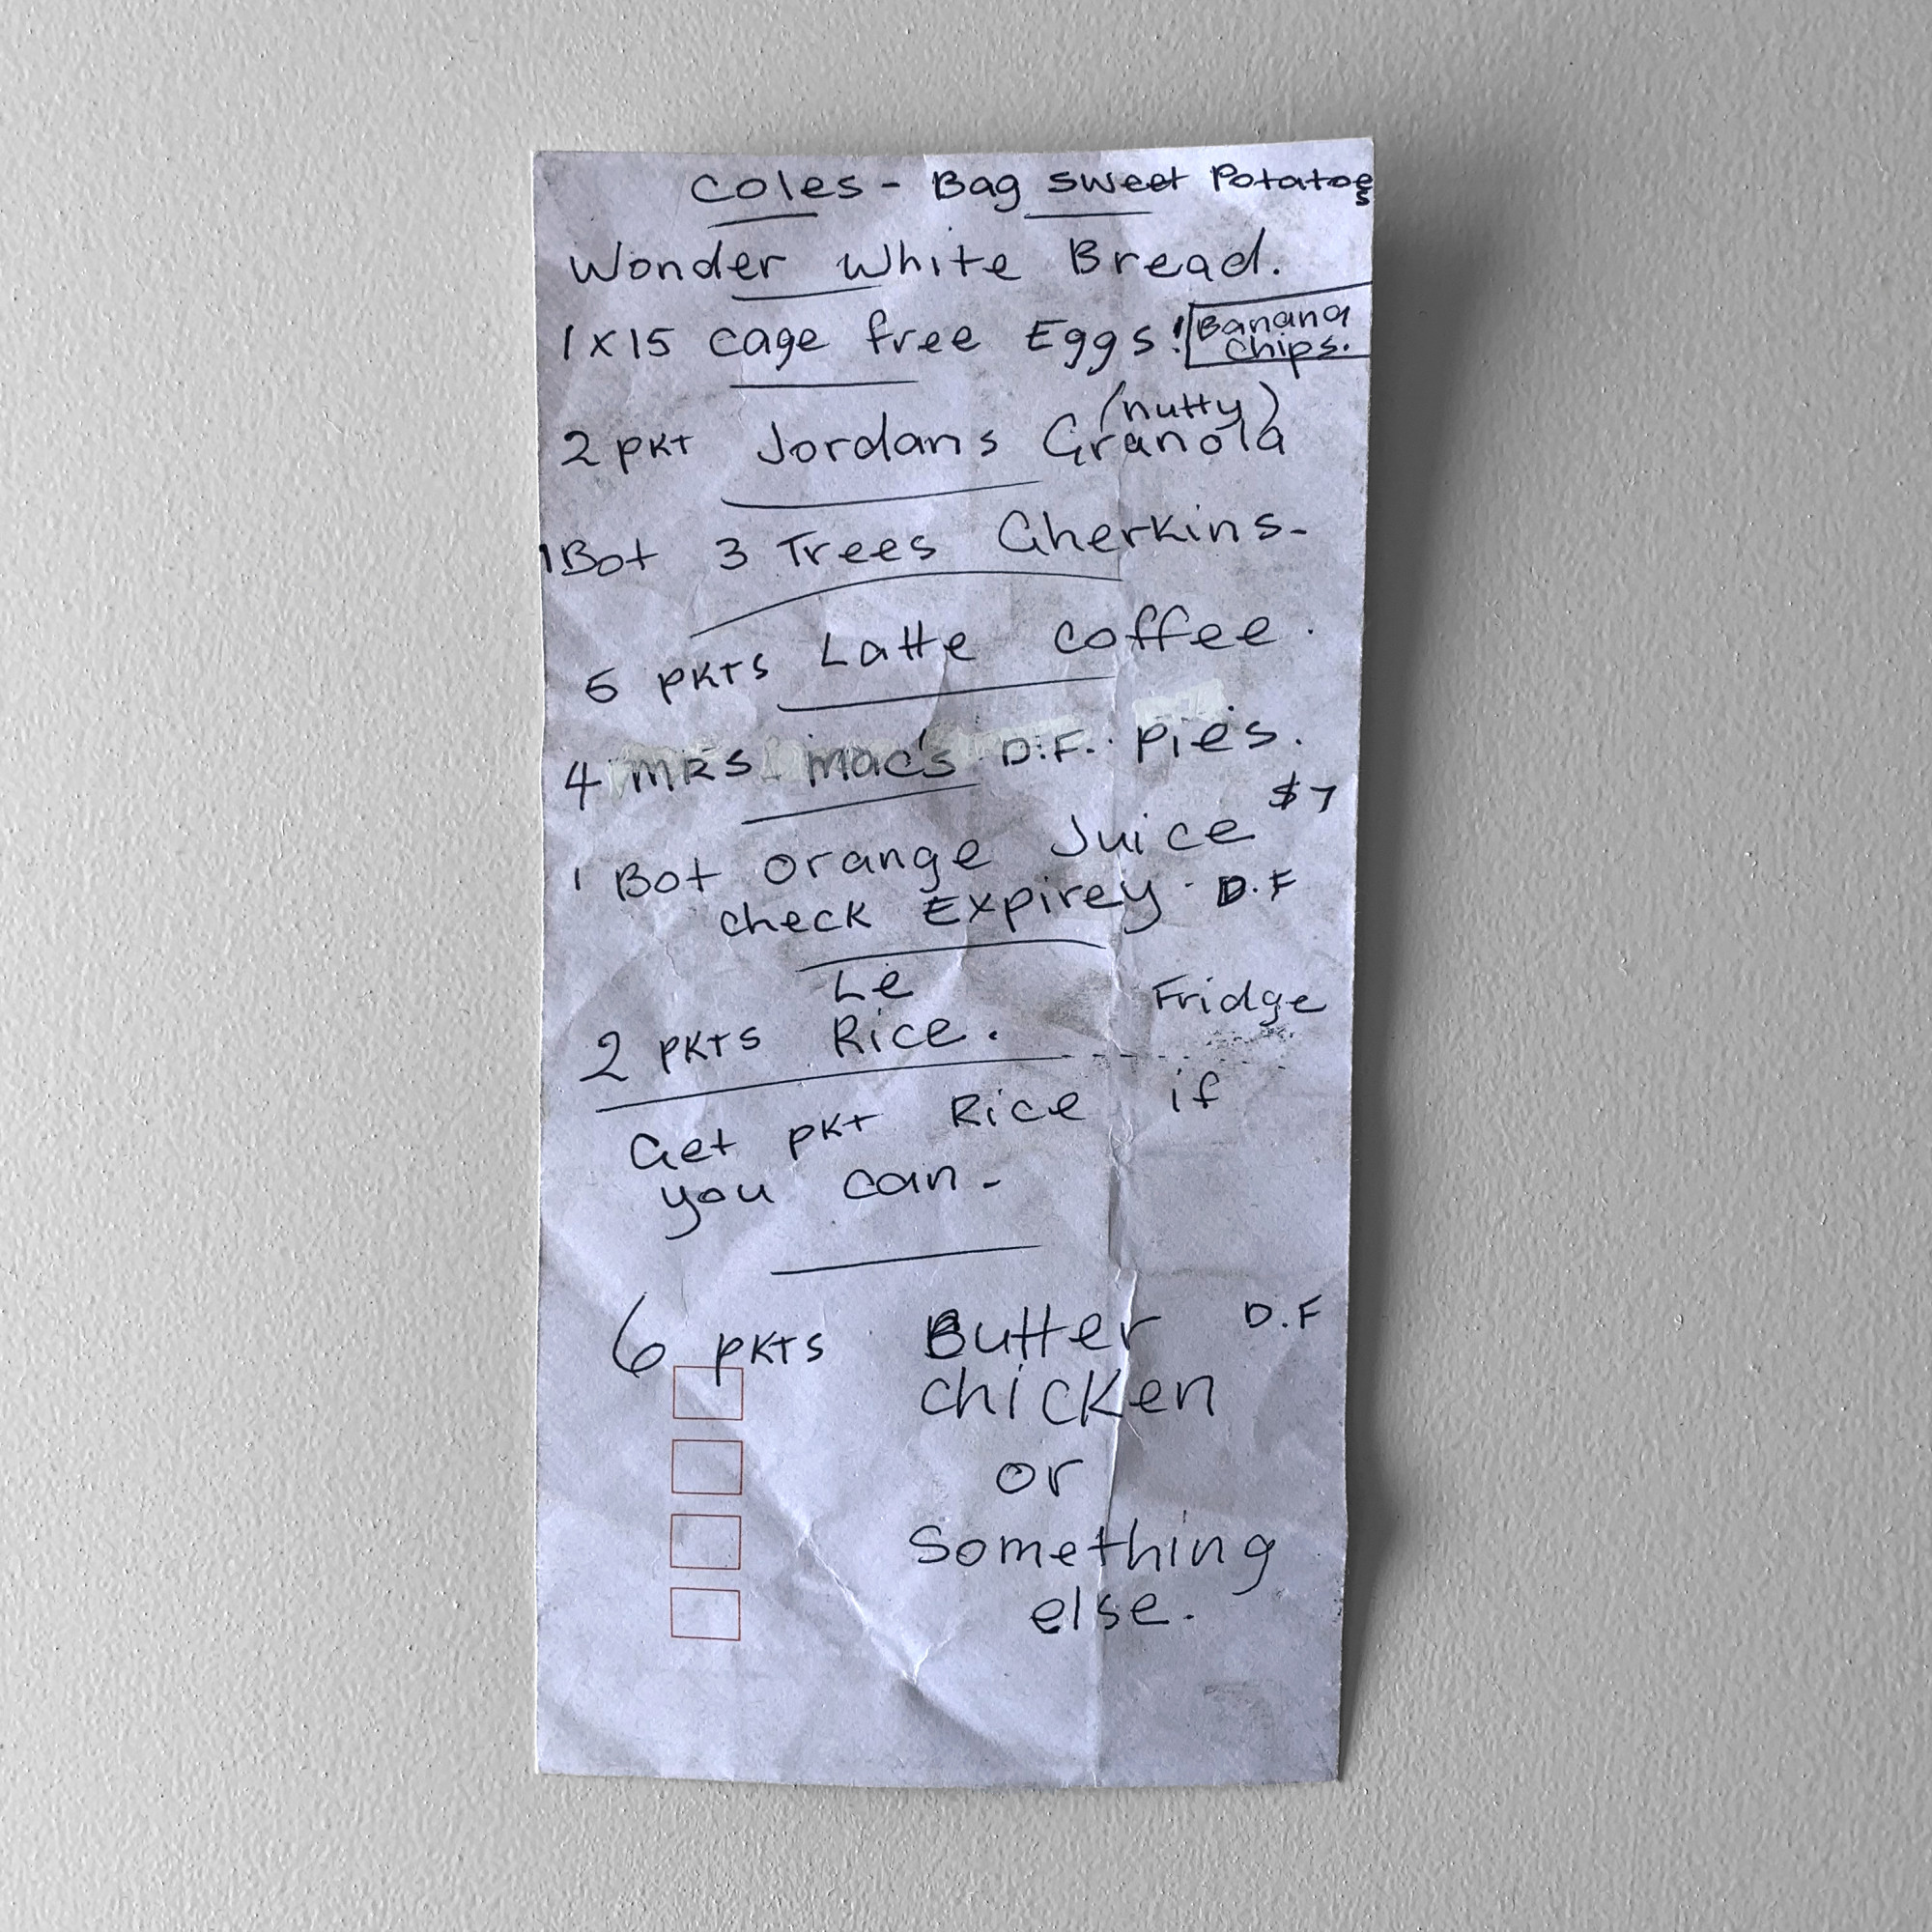 Coles - Bag sweet Potatoes
Wonder White Bread.
1 x 15 cage free Eggs! Banana
chips.
(nutty)
2 PKT Jordans Granola
1 Bot 3 Trees Gherkins-
5 PKTS Latte coffee.
4 MRS mac's D.F. pies.
$7
1 Bot orange Juice
check Expirey. D.F
Le Fridge
2 PKTS Rice.
Get PKT Rice if
you can-
6 PKTS Butter D.F
chicken
or
Something
else.